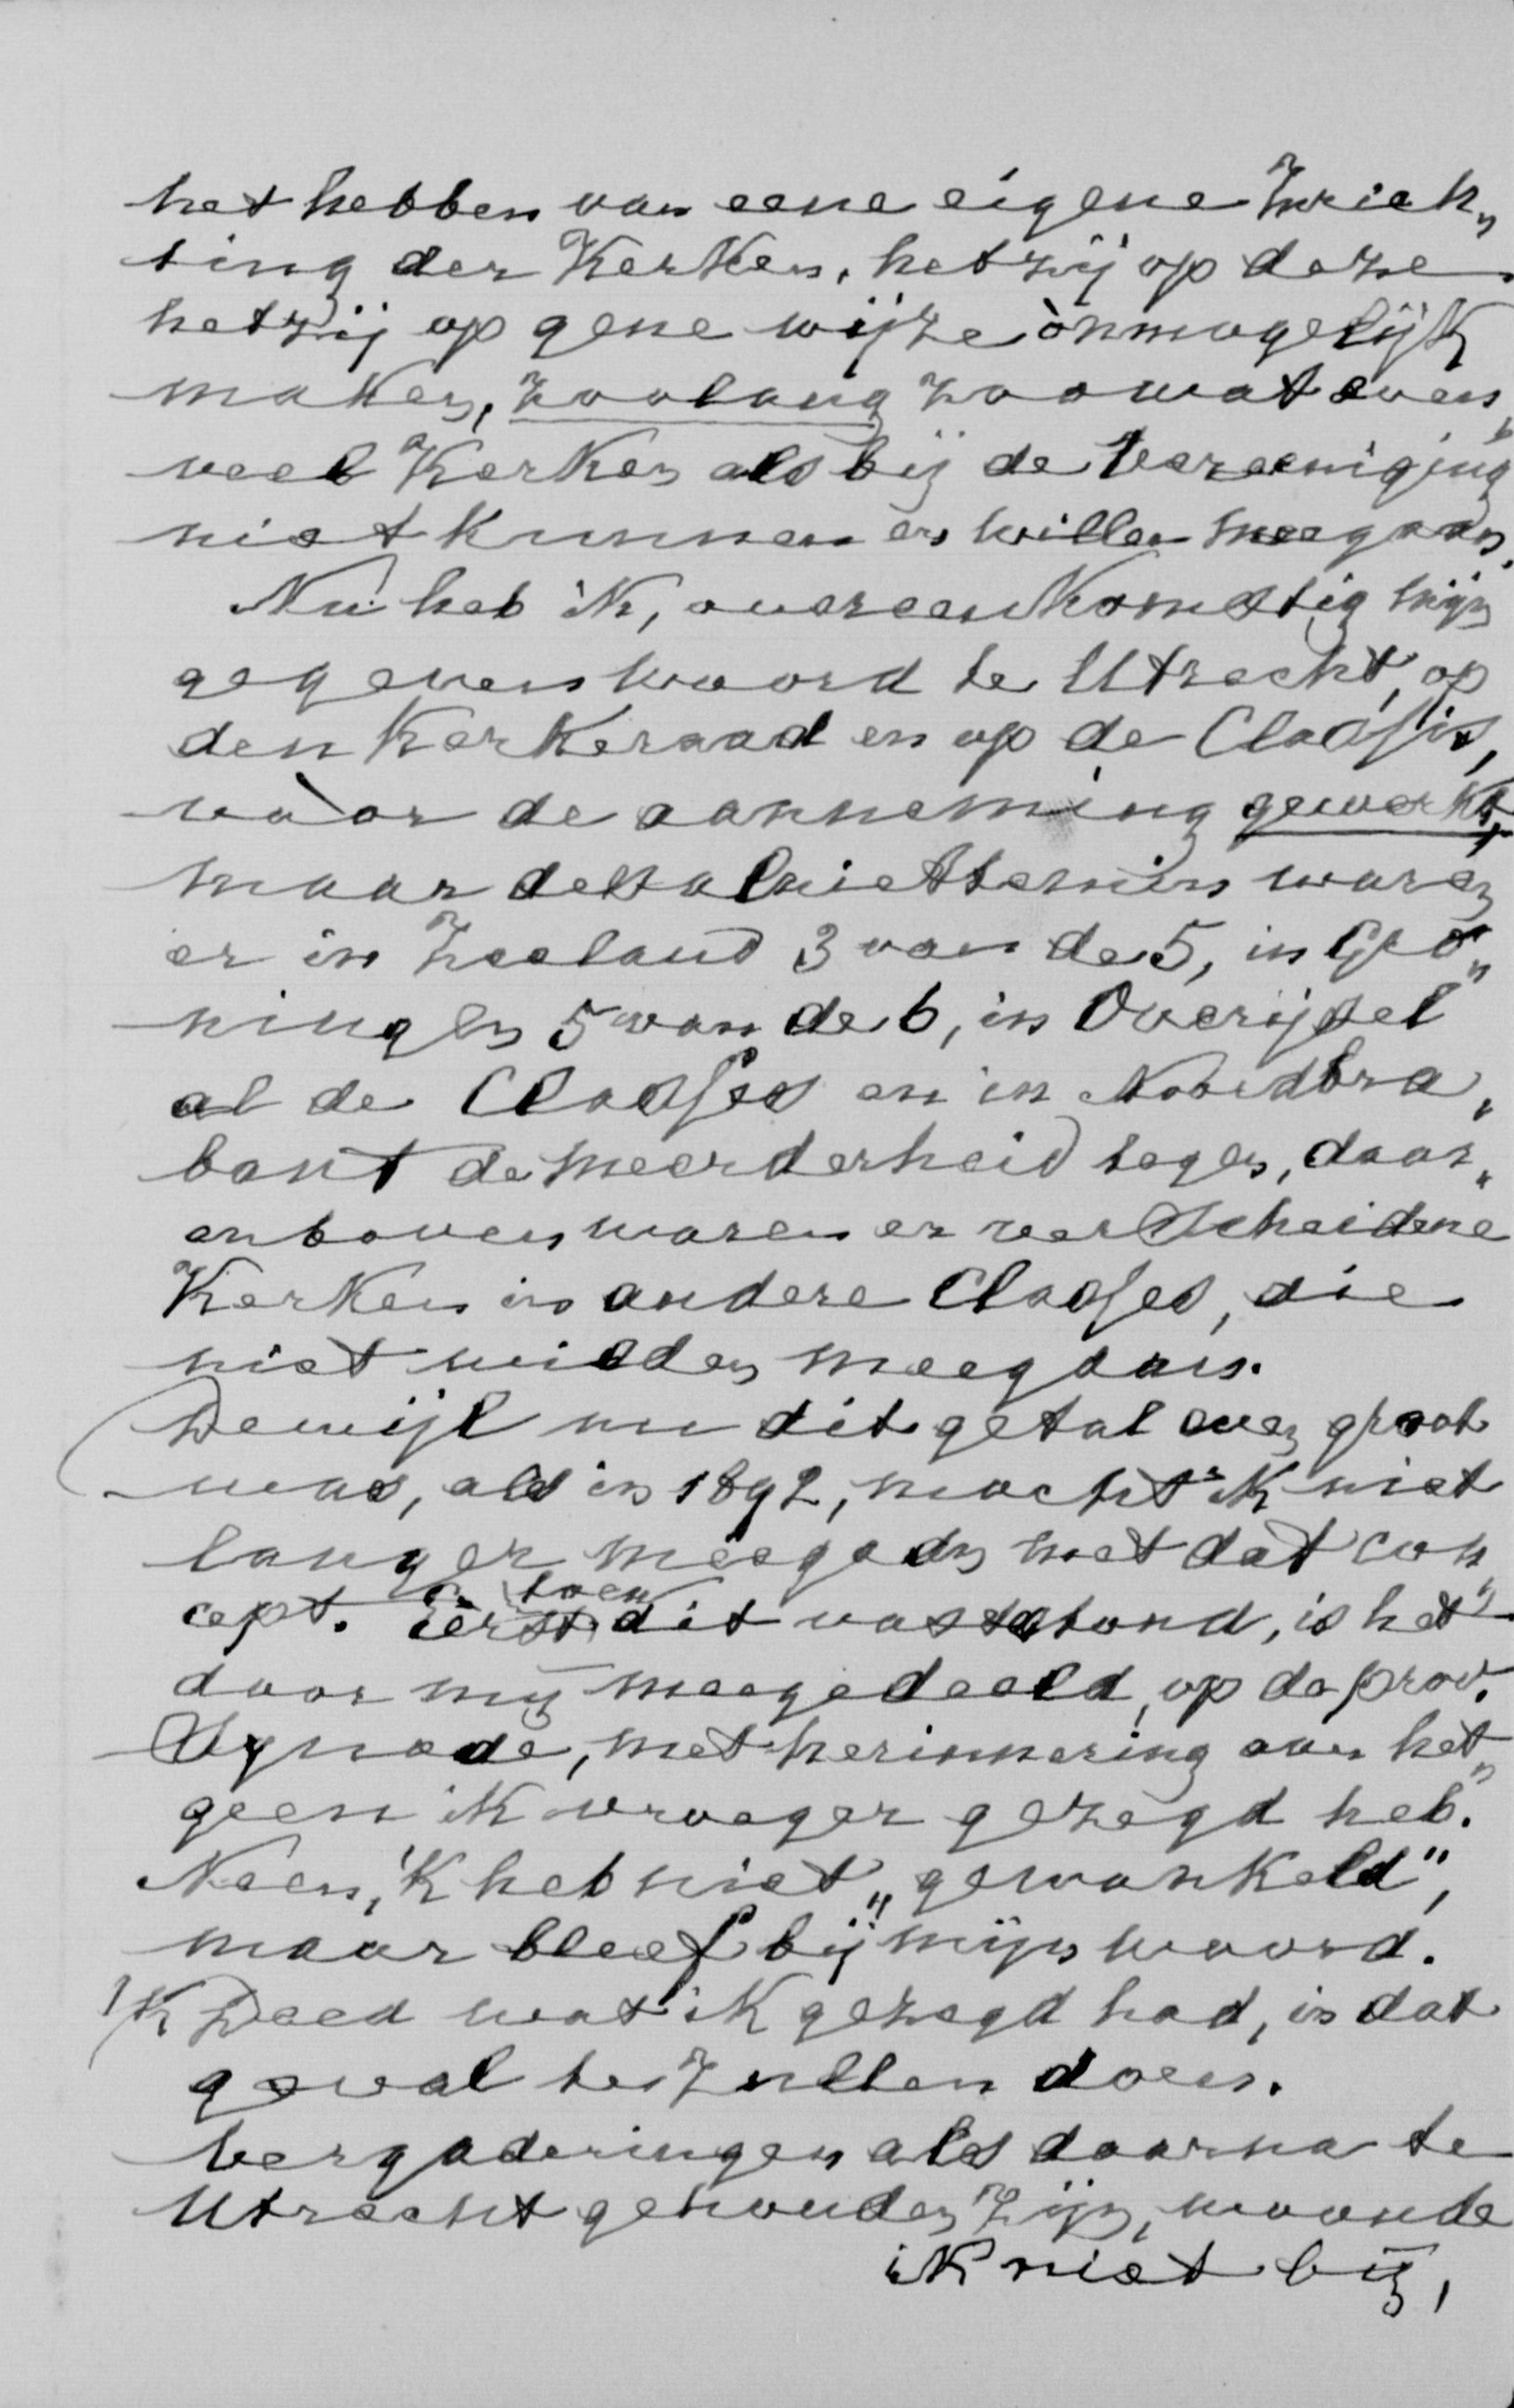 het hebben van eene eigene Inrich„
ting der Kerken, hetzij op deze
hetzij op gene wijze ònmogelijk
maken, zoolang zoowat even„
veel Kerken als bij de Vereeniging
niet kunnen en willen meegaan.
Nu heb ik, overeenkomstig mijn
gegeven woord te Utrecht, op
den Kerkeraad en op de Classis,
vòor de aanneming gewerkt,
maar desalniettemin waren
er in Zeeland 3 van de 5, in Gro„
ningen 5 van de 6, in Overijsel
al de Classes en in Noordbra„
bant de meerderheid tegen, daar„
enboven waren er verscheidene
Kerken in andere Classes, die
niet wilden meegaan.
Dewijl nu dit getal even groot
was, als in 1892, mocht ik niet
langer meegaan met dat con„
cept. Eerst toen dit vaststond, is het
door mij meegedeeld, op de prov.
Synode, met herinnering aan het„
geen ik vroeger gezegd heb.
Neen, 'k heb niet „gewankeld",
maar bleef bij mijn woord.
'K Deed wat ik gezegd had, in dat
geval te zullen doen.
Vergaderingen als daarna te
Utrecht gehouden zijn, woonde
ik niet bij,